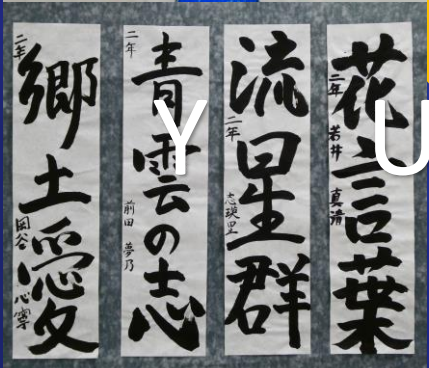 花言葉
二年 若井 真清
流星群
二年
青雲の志
二年 前田 夢乃
郷土愛
二年 岡谷 心寧
Y U